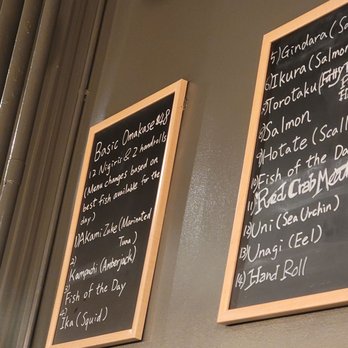 Basic Omakase
12 Nigiris & 2 handrolls
(Menu changes based on
best fish available for the
day)
1) Akami Zuke (Marinated
Tuna)
2)
Kampachi (Amberjack)
3)
Fish of the Day
4)
Ika (Squid)
5) Gindara (Sa
6) Ikura (Salmon
7) Torotaku
8) Salmon
9) Hotate (Scall
10) Fish of the Day
11) Red Crab Meat
12) Uni (Sea Urchin)
13) Unagi (Eel)
14) Hand Roll